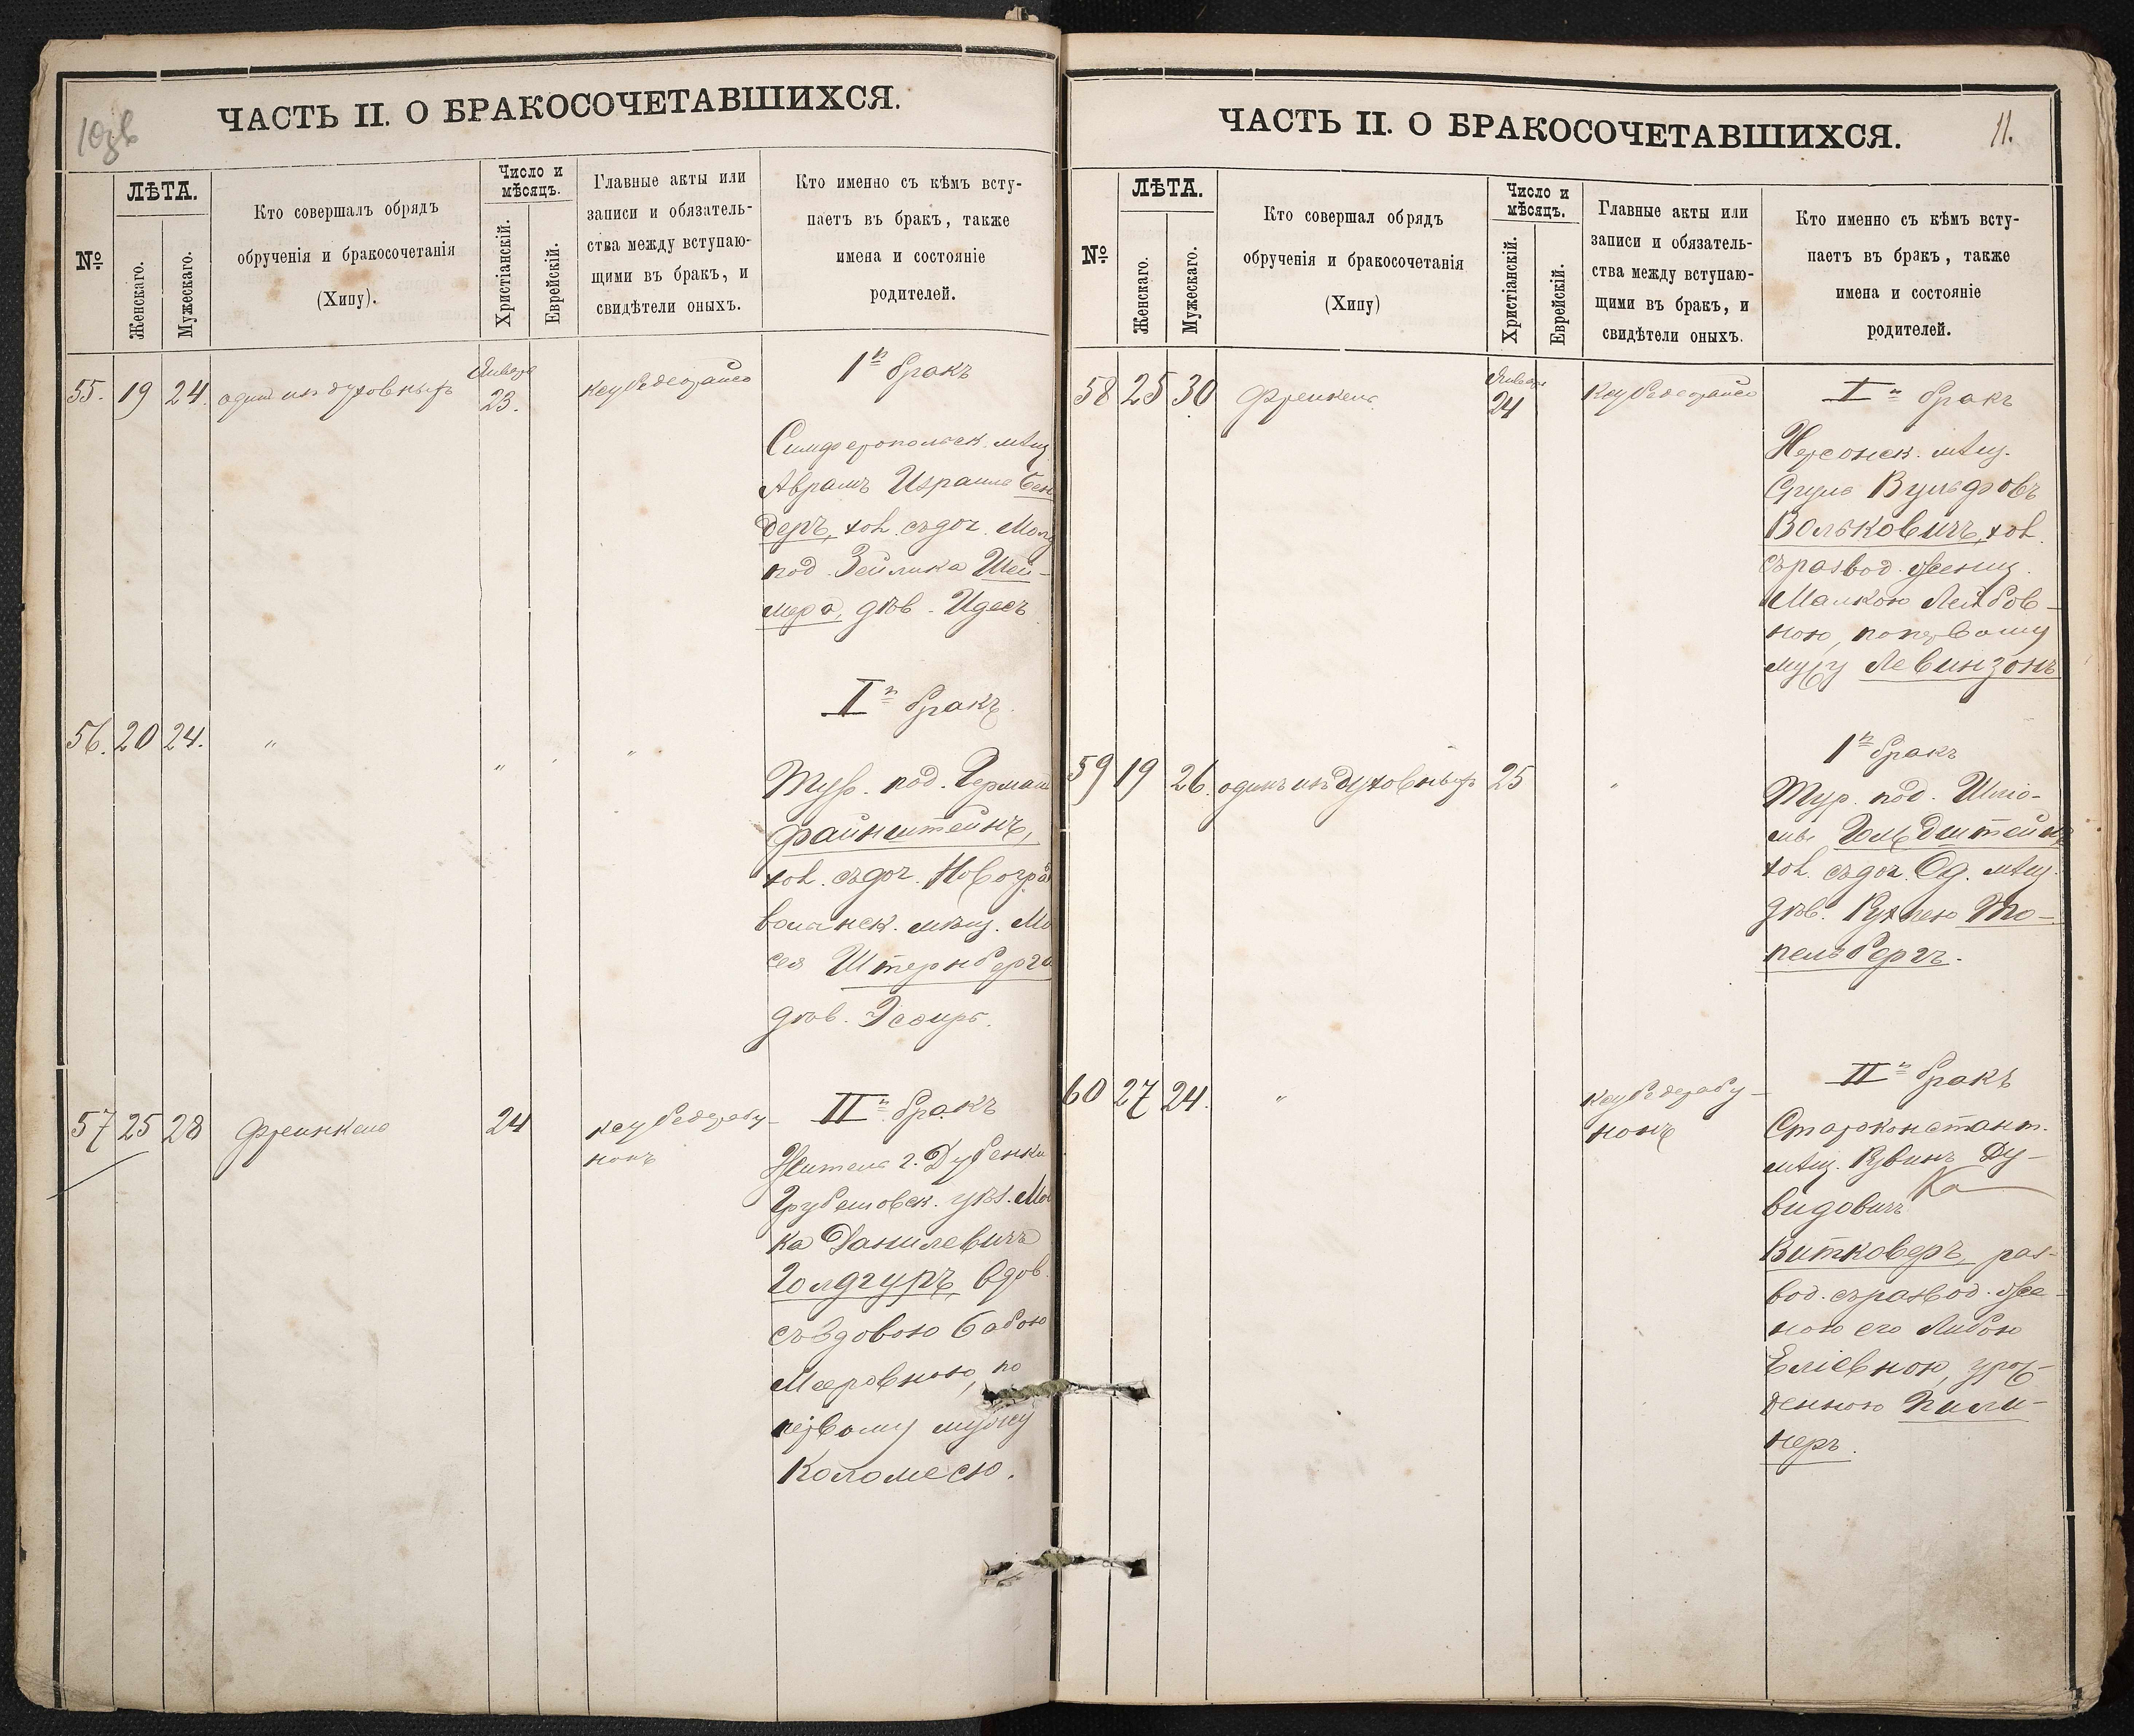 10об
ЧАСТЬ II. О БРАКОСОЧЕТАВШИХСЯ.
№
ЛѢТА.
Женскаго.
Мужескаго.
Кто совершалъ обрядъ
обрученія и бракосочетанія
(Хипу).
Число и
мѣсяцъ.
Христіанскій.
Еврейскій.
Главные акты или
записи и обязатель-
ства между вступаю-
щими въ бракъ, и
свидѣтели оныхъ.
Кто именно съ кѣмъ всту-
паетъ въ бракъ, также
имена и состояніе
родителей.
55. 19 24. одинъ изъ духовныхъ
Января
23.
1й бракъ
Симферопольск. мѣщ.
Абрамъ Израиль Бен
деръ, хол. съ доч.
под. Зейлика Шей-
мера, дѣв. Идесъ
56. 20 24. " " "
Iй бракъ.
Тур. под. Германъ
Файнштейнъ,
хол. съ доч. Новоград
волынск. мѣщ. Мо
сея Штернберга
дѣв. Эсфирь.
57 25 28 Френкель 24 кеубедерабу-
нонъ
IIй бракъ
Житель г. Дубенки
Грубешовск. уѣз.
ка Данилевичъ
Голдгуръ, вдов.
съ вдовою Бабою
Мееровною, по
первому мужу
Коломесю.
11.
ЧАСТЬ II. О БРАКОСОЧЕТАВШИХСЯ.
№
ЛѢТА.
Женскаго.
Мужескаго.
Кто совершал обрядъ
обрученія и бракосочетанія
(Хипу)
Число и
мѣсяцъ.
Христіанскій.
Еврейскій.
Главные акты или
записи и обязатель-
ства между вступаю-
щими въ бракъ, и
свидѣтели оныхъ.
Кто именно съ кѣмъ всту-
паетъ въ бракъ, также
имена и состояніе
родителей.
58 25 30 Френкель
Января
24
Iй бракъ
Херсонск. мѣщ.
Сруль Вульфовъ
Вольковичъ, хол.
съ развод. женщ.
Малкою Лейбов-
ною, по первому
мужу Левинзонъ
59 19 26. одинъ изъ духовныхъ 25 "
1й бракъ
Тур. под. Шлио-
мы Гольдштейнъ
хол. съ доч. Од. мѣщ.
дѣв. Рухлею То-
пельбергъ.
60 27 24. " кеубедерабу-
нонъ
IIй бракъ
Староконстант.
мѣщ. Рувинъ Ду-
Ка
видовичъ
Витковеръ, раз-
вод. съ развод. же-
ною его Либою
Еліевною, урож-
денною Пили-
неръ.